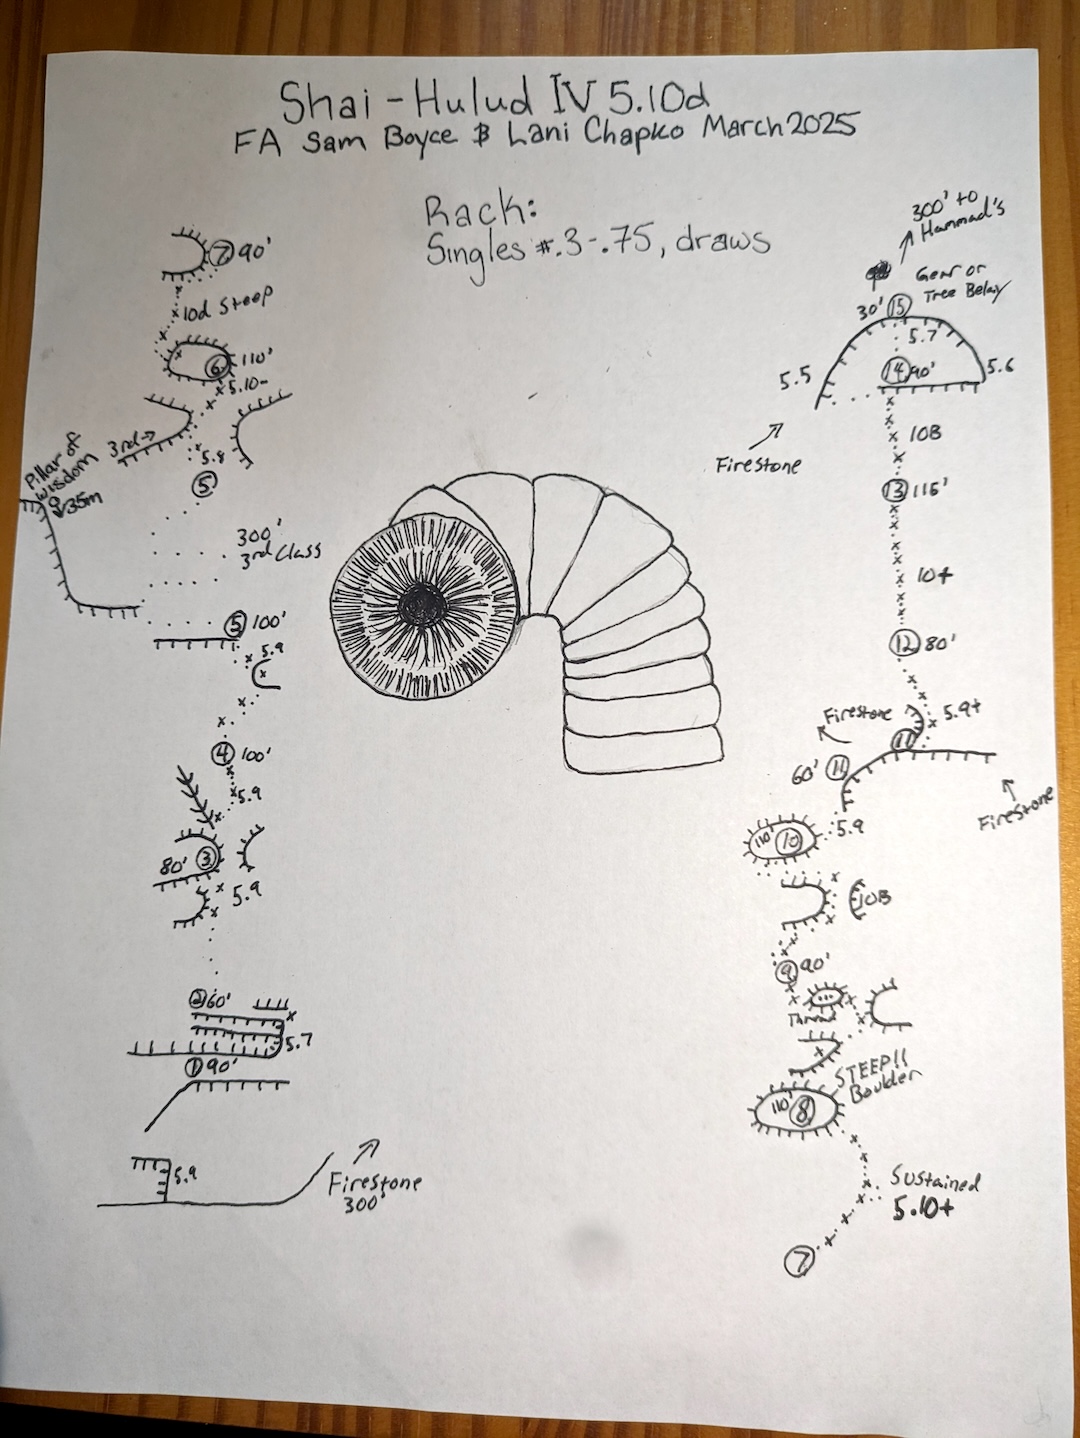 Shai-Hulud IV 5.10d
FA Sam Boyce & Lani Chapko March 2025
Rack:
Singles #.3-.75, draws
7 90'
10d Steep
6 110'
5.10-
3rd →
5.8
Pillar of
Wisdom
35m
5
300'
3rd Class
5 100'
5.9
4 100'
5.9
80' 3
5.9
2 60'
5.7
1 90'
5.9
Firestone
300'
300' to
Hammad's
Gear or
Tree Belay
30' 15
5.7
5.5
14 90'
5.6
10B
Firestone
13 115'
10+
12 80'
5.9+
Firestone
11
60' 11
Firestone
5.9
110' 10
10B
9 90'
Thread
STEEP!!
Boulder
110' 8
Sustained
5.10+
7